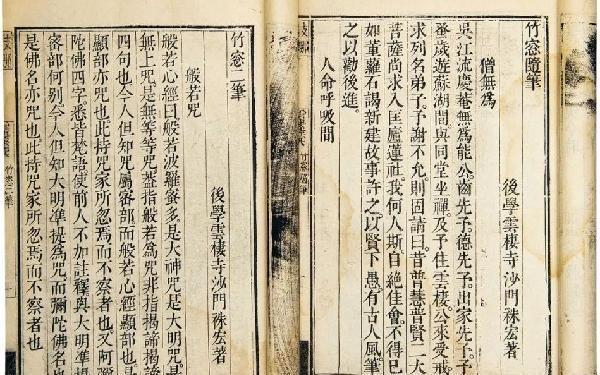 竹窓隨筆
後學雲棲寺沙門袾宏著
僧無爲
吳江流慶菴無爲能公。齒先予。德先予。出家先予。予
癸歲遊蘇湖間。與同堂坐禪。及予住雲棲。公來受戒
求列名弟子。予謝不允。則固請曰。昔普慧普賢二大
菩薩尚求入匡廬蓮社。我何人斯。自絕佳會。不得已
如董蘿石謁新建故事許之。以賢下愚。有古人風。筆
之以勸後進。
人命呼吸間
竹窓二筆
後學雲棲寺沙門袾宏著
般若咒
般若心經曰。般若波羅蜜多。是大神咒。是大明咒。是
無上咒。是無等等咒。蓋指般若爲咒。非指揭諦揭諦
四句也。今人但知咒屬密部。而般若心經顯部也。是
顯部亦咒也。此持咒家所忽焉而不察者也。又阿彌
陀佛四字。悉皆梵語。使前人不加註釋。與大明準提
密部何別。今人但知大明準提爲咒。而彌陀佛名也
是佛名亦咒也。此持咒家所忽焉而不察者也